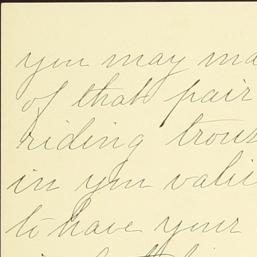 you may ma
of that pair
riding trous
in your valie
to have your